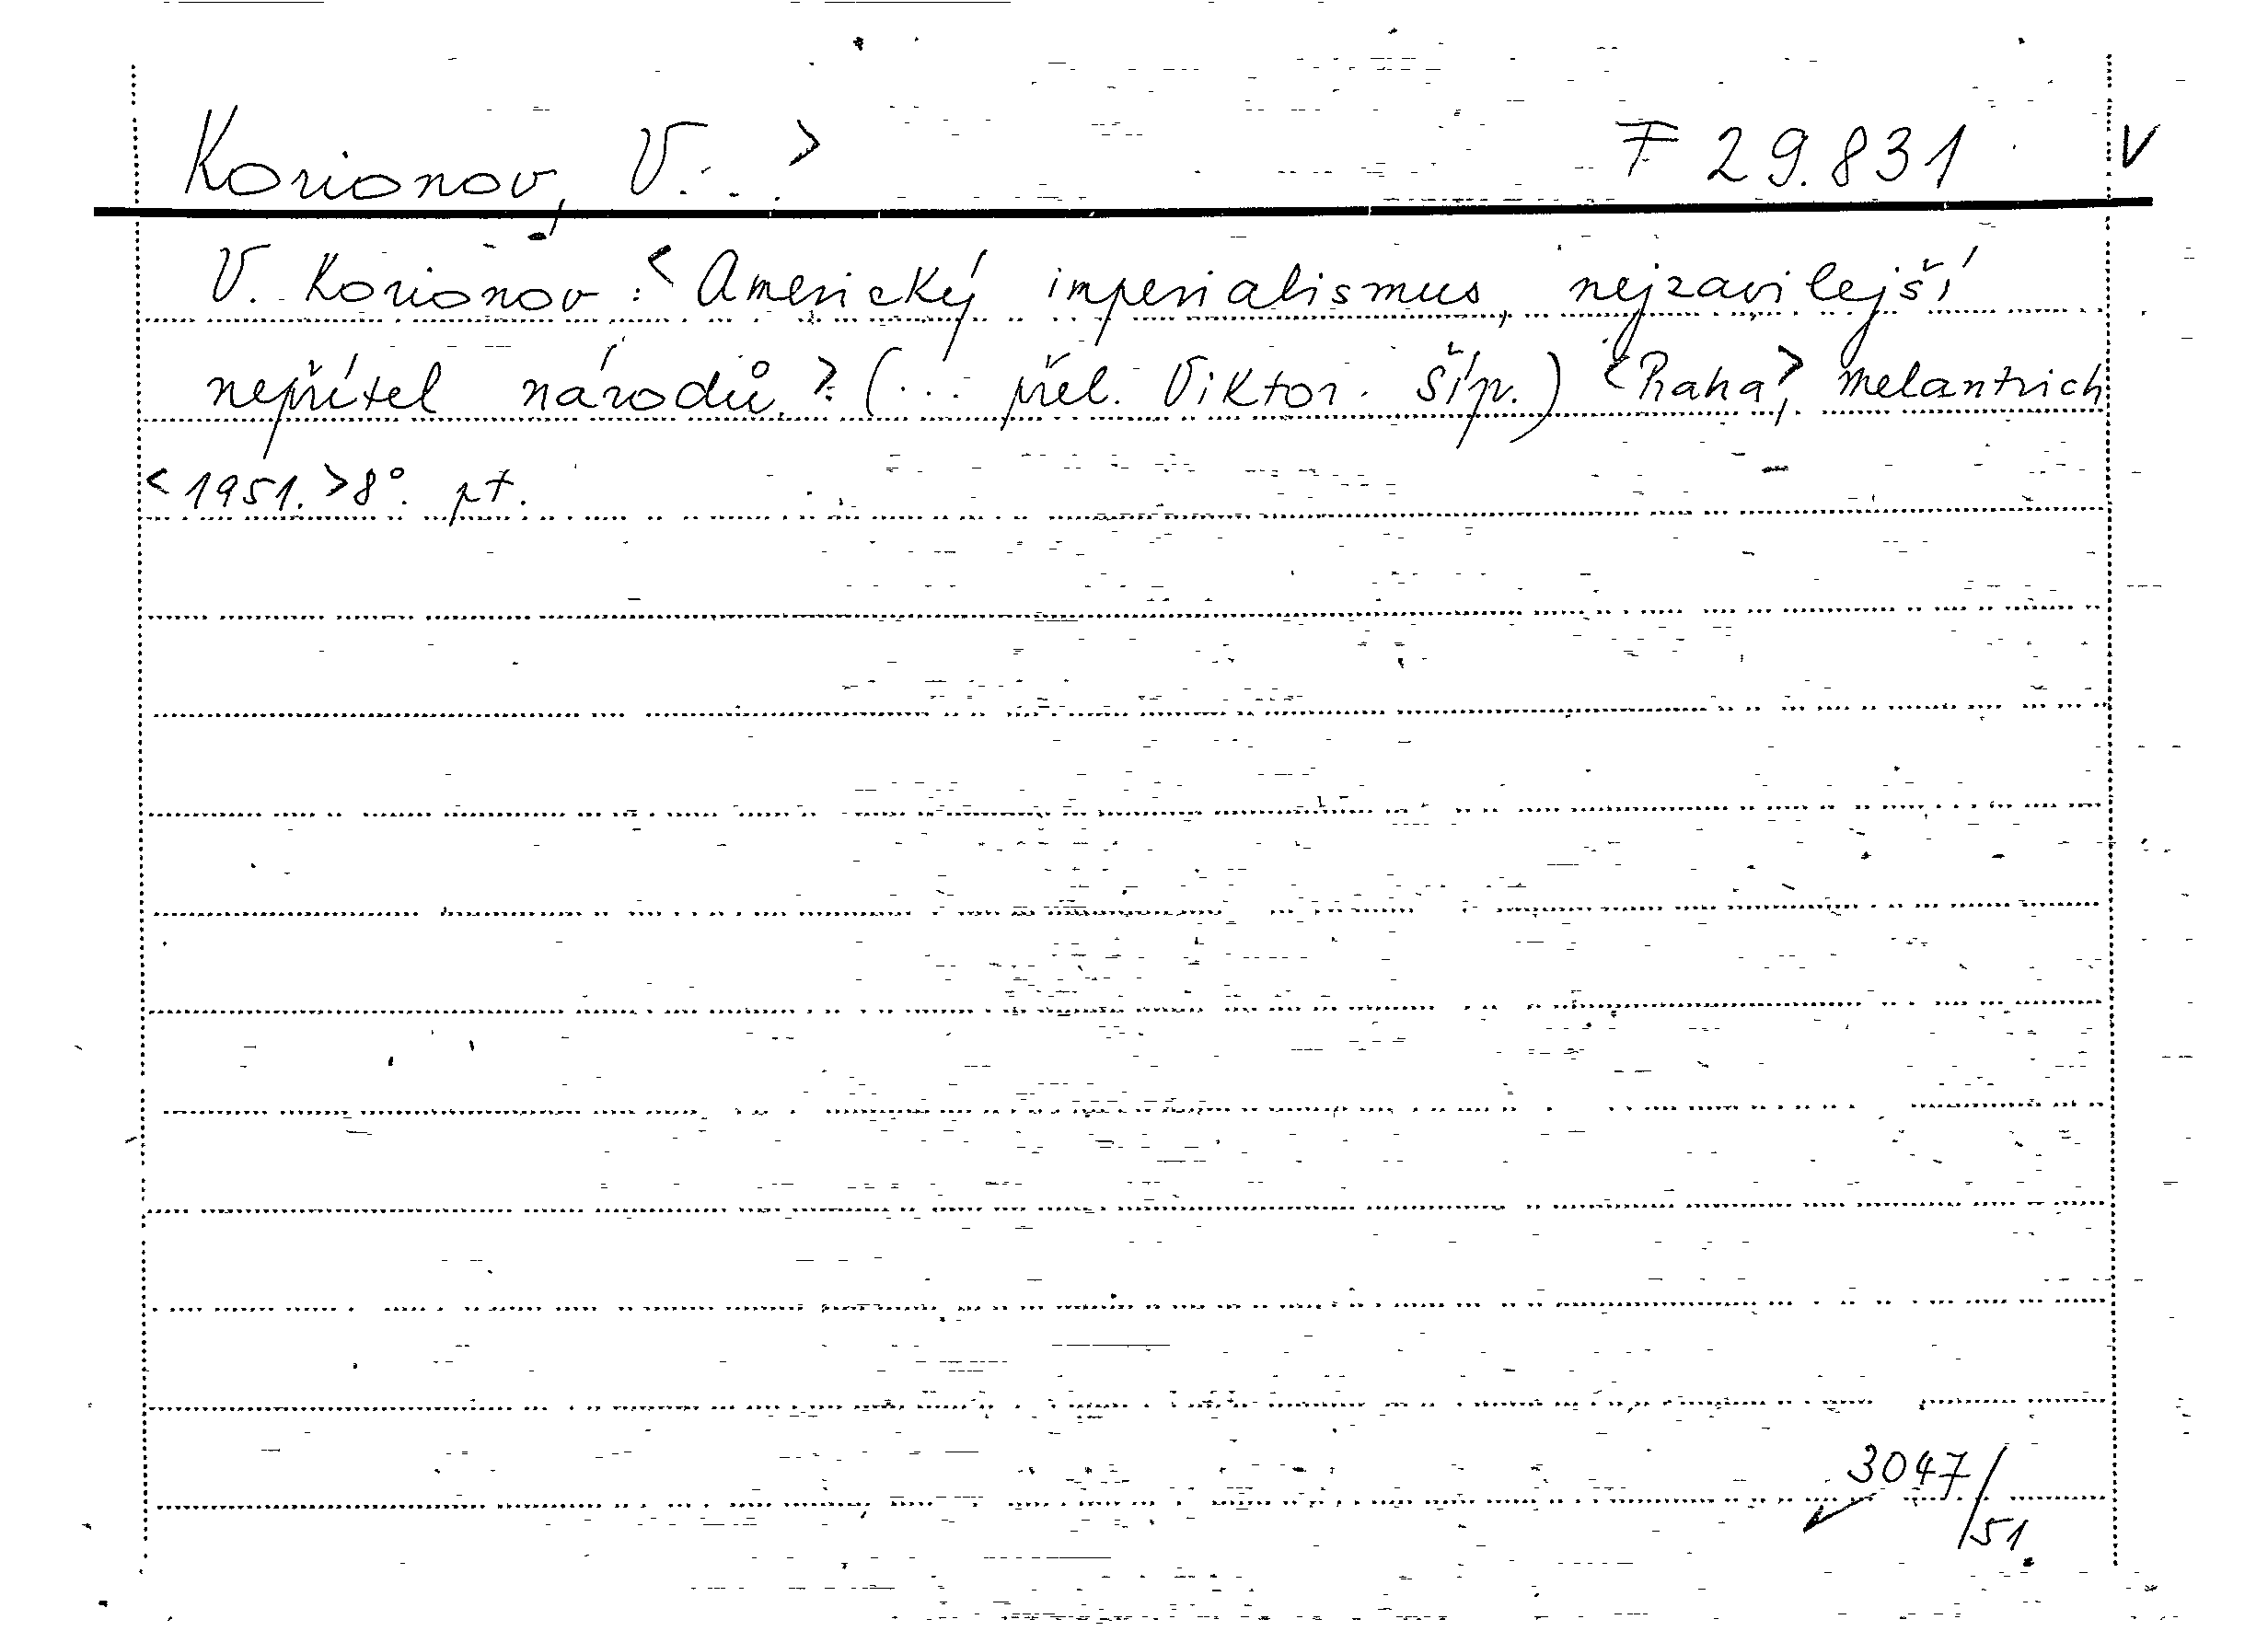 Korionov, V... > F 29.831 V
V. Korionov: <Americký imperialismus, nejzavilejší
nepřítel národů.> (... přel. Viktor Šíp.) <Praha,> Melantrich
<1951.> 8°. pt.
3047/51.